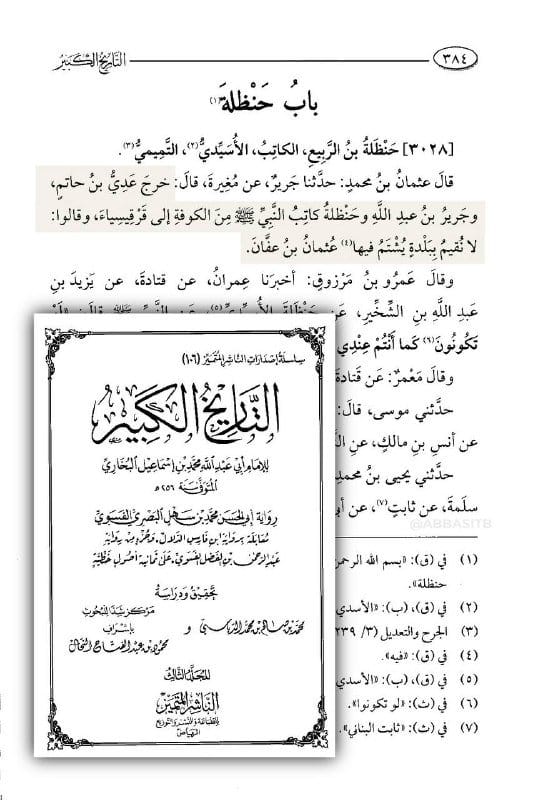 التاريخ الكبير
٣٨٤
بابُ حَنْظلةَ(١)
[٣٠٢٨] حَنْظَلَةُ بنُ الرَّبيعِ، الكاتِبُ، الأُسَيِّديُّ(٢)، التَّمِيميُّ(٣).
قالَ عثمانُ بنُ محمدٍ: حدَّثنا جَريرٌ، عن مُغيرةَ، قالَ: خرجَ عَدِيُّ بنُ حاتمٍ،
وجَريرُ بنُ عبدِ اللَّهِ وحَنْظلةُ كاتِبُ النَّبيِّ ﷺ مِنَ الكوفةِ إلى قَرْقِيسِياءَ، وقالوا:
لا نُقيمُ بِبَلْدةٍ يُشْتَمُ فيها(٤) عُثمانُ بنُ عفَّانَ.
وقالَ عَمرُو بنُ مَرْزوقٍ: أخبرَنا عِمرانُ، عن قتادةَ، عن يَزيدَ بنِ
عبدِ اللَّهِ بنِ الشِّخِّيرِ، عن حَنْظلةَ الأُسَيِّديِّ(٥)، عن النَّبيِّ ﷺ قالَ: «لَوْ
تَكُونُونَ(٦) كَما أَنْتُم عِنْدِي
وقالَ مَعْمَرٌ: عَن قَتادَة
حدَّثني موسى، قالَ:
عن أنسِ بنِ مالكٍ، عن
حدَّثني يحيى بنُ محمدٍ
سلمةَ، عن ثابتٍ(٧)، عن
@ABBASITB
(١) في (ق): «بسم الله الرحمن
حنظلة».
(٢) في (ق)، (ب): «الأسدي
(٣) الجرح والتعديل (٣/ ٢٣٩
(٤) في (ق): «فيه».
(٥) في (ق)، (ب): «الأسدي
(٦) في (ث): «لو تكونوا».
(٧) في (ث): «ثابت البناني».
سلسلة إصدارات الناشر المتميز (١٠٦)
التَّاريخُ الكبيرُ
للإمام أبي عبد الله محمد بن إسماعيل البخاري
المتوفى سنة ٢٥٦ هـ
رواية أبي الحسن محمد بن سهل البصري الفسوي
مقابلة برواية ابن فارس الدلال، وجزء من رواية
عبد الرحمن بن الفضل الفسوي، على ثمانية أصول خطية
تحقيق ودراسة
محمد بن صالح بن محمد الدباسي
و
مركز شذا للبحوث
بإشراف
محمود بن عبد الفتاح النحال
المجلد الثالث
الناشر المتميز
للطباعة والنشر والتوزيع
الرياض